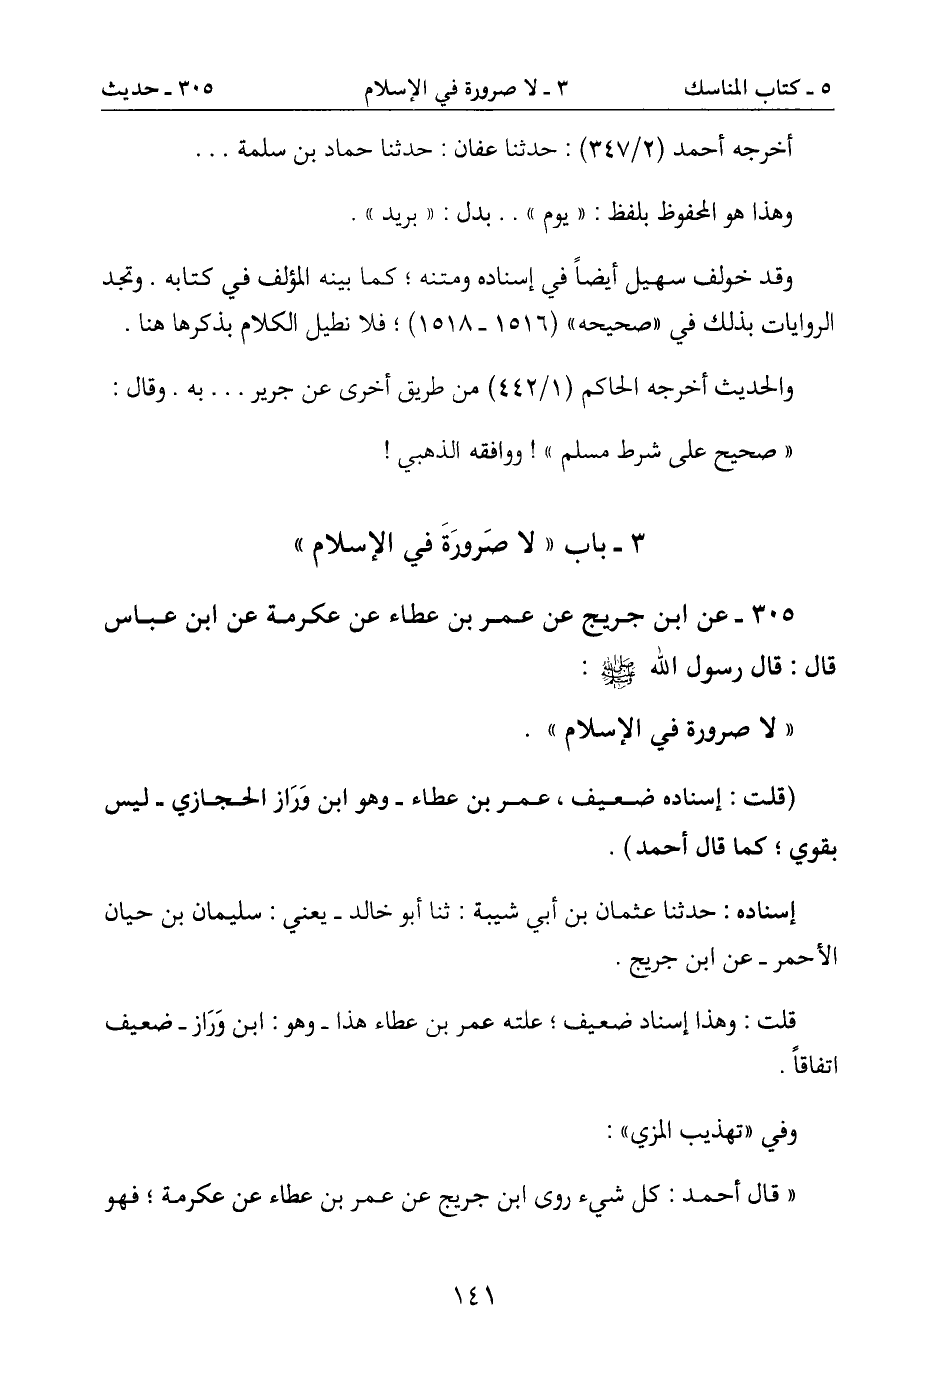 ٥ ـ كتاب المناسك ٣ ـ لا صرورة في الإسلام ٣٠٥ ـ حديث
أخرجه أحمد (٣٤٧/٢) : حدثنا عفان : حدثنا حماد بن سلمة . . .
وهذا هو المحفوظ بلفظ : « يوم » . . بدل : « بريد » .
وقد خولف سهيل أيضاً في إسناده ومتنه ؛ كما بينه المؤلف في كتابه . وتجد
الروايات بذلك في «صحيحه» (١٥١٦ ـ ١٥١٨) ؛ فلا نطيل الكلام بذكرها هنا .
والحديث أخرجه الحاكم (٤٤٢/١) من طريق أخرى عن جرير . . . به . وقال :
« صحيح على شرط مسلم » ! ووافقه الذهبي !
٣ ـ باب « لا صَرورَةَ في الإسلام »
٣٠٥ ـ عن ابن جريج عن عمر بن عطاء عن عكرمة عن ابن عباس
قال : قال رسول الله ﷺ :
« لا صرورة في الإسلام » .
(قلت : إسناده ضعيف ، عمر بن عطاء ـ وهو ابن وَرَاز الحجازي ـ ليس
بقوي ؛ كما قال أحمد) .
إسناده : حدثنا عثمان بن أبي شيبة : ثنا أبو خالد ـ يعني : سليمان بن حيان
الأحمر ـ عن ابن جريج .
قلت : وهذا إسناد ضعيف ؛ علته عمر بن عطاء هذا ـ وهو : ابن وَرَاز ـ ضعيف
اتفاقاً .
وفي «تهذيب المزي» :
« قال أحمد : كل شيء روى ابن جريج عن عمر بن عطاء عن عكرمة ؛ فهو
١٤١